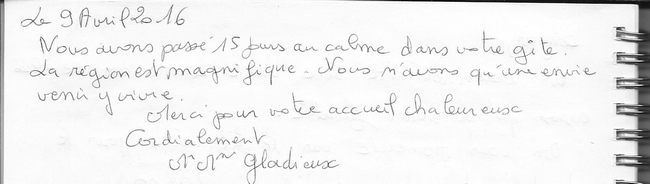 Le 9 Avril 2016
Nous avons passé 15 jours au calme dans votre gîte.
La région est magnifique. Nous n'avons qu'une envie
venir y vivre.
Merci pour votre accueil chaleureux
Cordialement
Gladieux